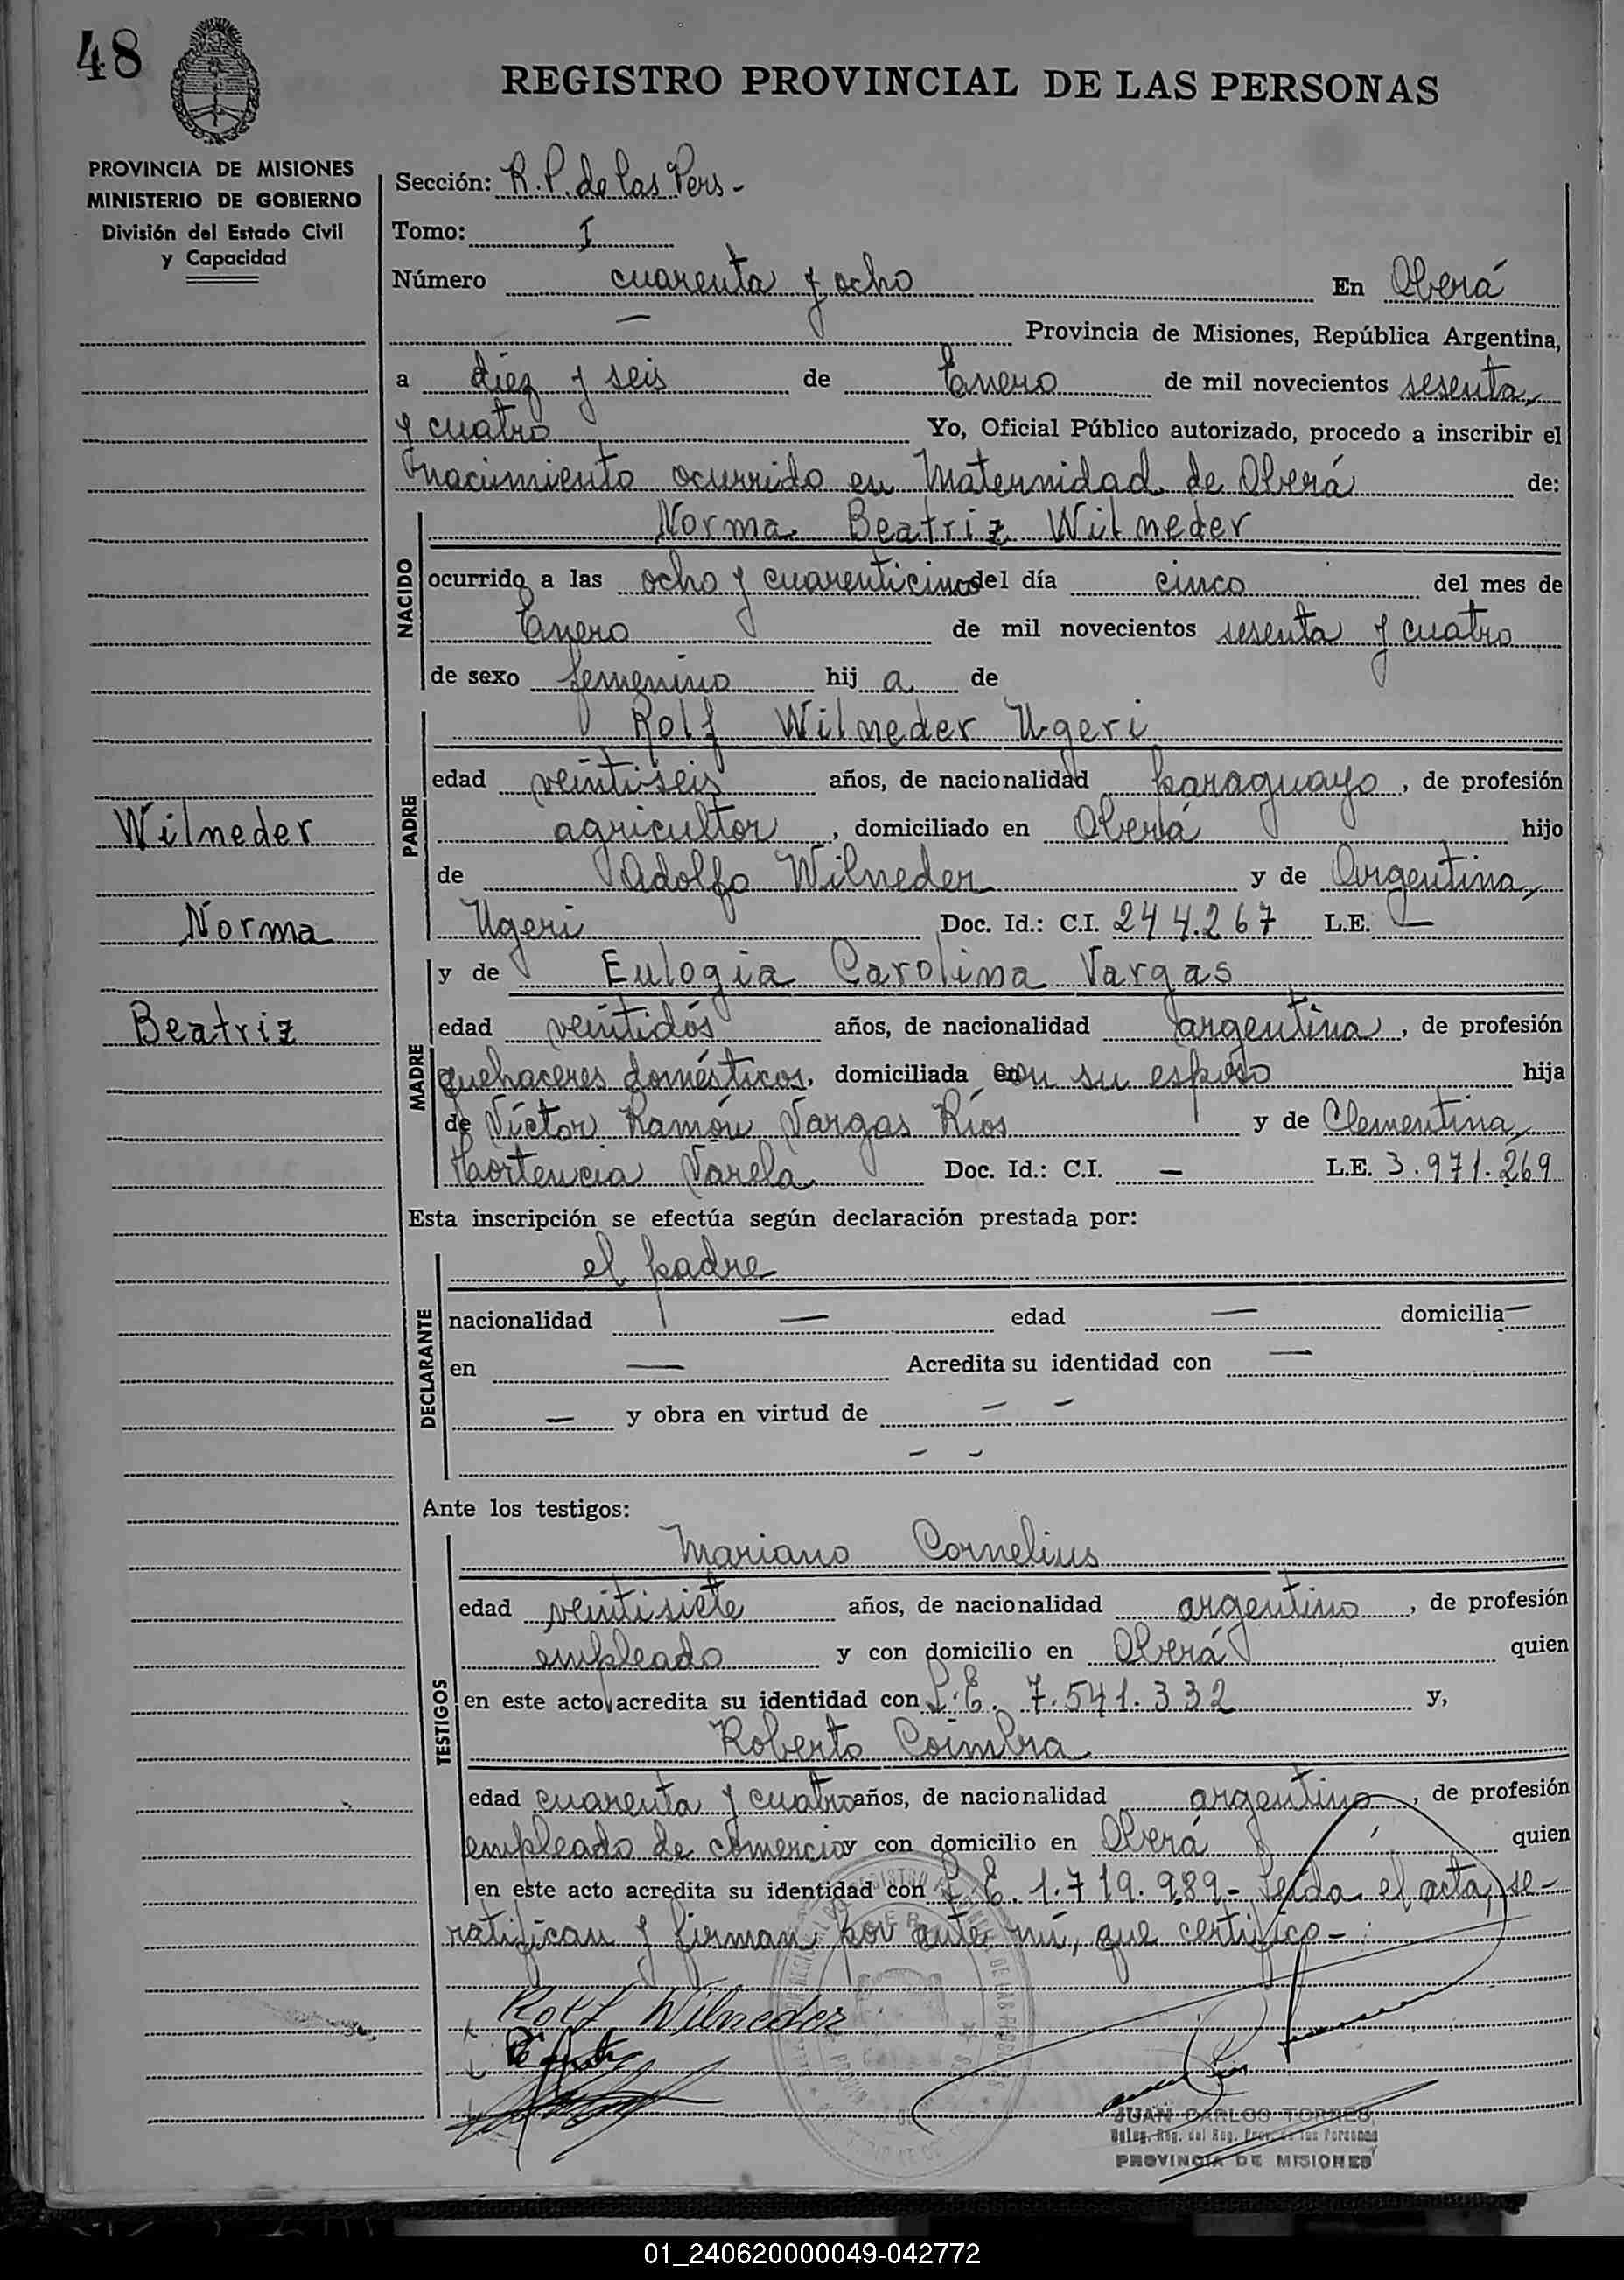 48
REGISTRO PROVINCIAL DE LAS PERSONAS
PROVINCIA DE MISIONES
MINISTERIO DE GOBIERNO
División del Estado Civil
y Capacidad
Sección: R.P. de las Pers-
Tomo: I
Número cuarenta y ocho En Oberá
— Provincia de Misiones, República Argentina,
a diez y seis de Enero de mil novecientos sesenta
y cuatro Yo, Oficial Público autorizado, procedo a inscribir el
nacimiento ocurrido en Maternidad de Oberá de:
NACIDO
Norma Beatriz Wilneder
ocurrido a las ocho y cuarenticinco del día cinco del mes de
Enero de mil novecientos sesenta y cuatro
de sexo femenino hij a de
PADRE
Rolf Wilneder Ugeri
edad veintiseis años, de nacionalidad paraguayo, de profesión
agricultor, domiciliado en Oberá hijo
de Adolfo Wilneder y de Argentina
Ugeri Doc. Id.: C.I. 244.267 L.E. —
Wilneder
Norma
Beatriz
MADRE
y de Eulogia Carolina Vargas
edad veintidós años, de nacionalidad argentina, de profesión
quehaceres domésticos, domiciliada con su esposo hija
de Víctor Ramón Vargas Ríos y de Clementina
Hortencia Varela Doc. Id.: C.I. — L.E. 3.971.269
Esta inscripción se efectúa según declaración prestada por:
DECLARANTE
el padre
nacionalidad — edad — domicilia —
en — Acredita su identidad con —
— y obra en virtud de — —
- -
Ante los testigos:
TESTIGOS
Mariano Cornelius
edad veintisiete años, de nacionalidad argentino, de profesión
empleado y con domicilio en Oberá quien
en este acto acredita su identidad con L.E. 7.541.332 y,
Roberto Coimbra
edad cuarenta y cuatro años, de nacionalidad argentino, de profesión
empleado de comercio y con domicilio en Oberá quien
en este acto acredita su identidad con L.E. 1.719.989- Leída el acta, se-
ratifican y firman por ante mí, que certifico-
Rolf Wilneder
JUAN CARLOS TORRES
Deleg. Reg. del Reg. Prov. de las Personas
PROVINCIA DE MISIONES
01_240620000049-042772